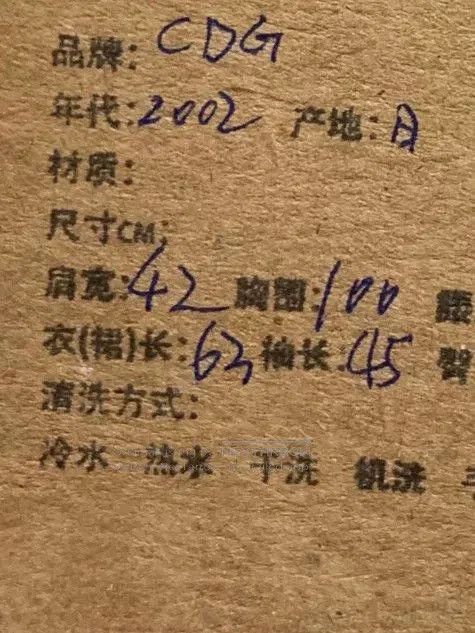 品牌: CDG
年代: 2002 产地: 日
材质:
尺寸CM:
肩宽: 42 胸围: 100 腰
衣(裙)长: 63 袖长: 45 臀
清洗方式:
冷水 热水 干洗 机洗